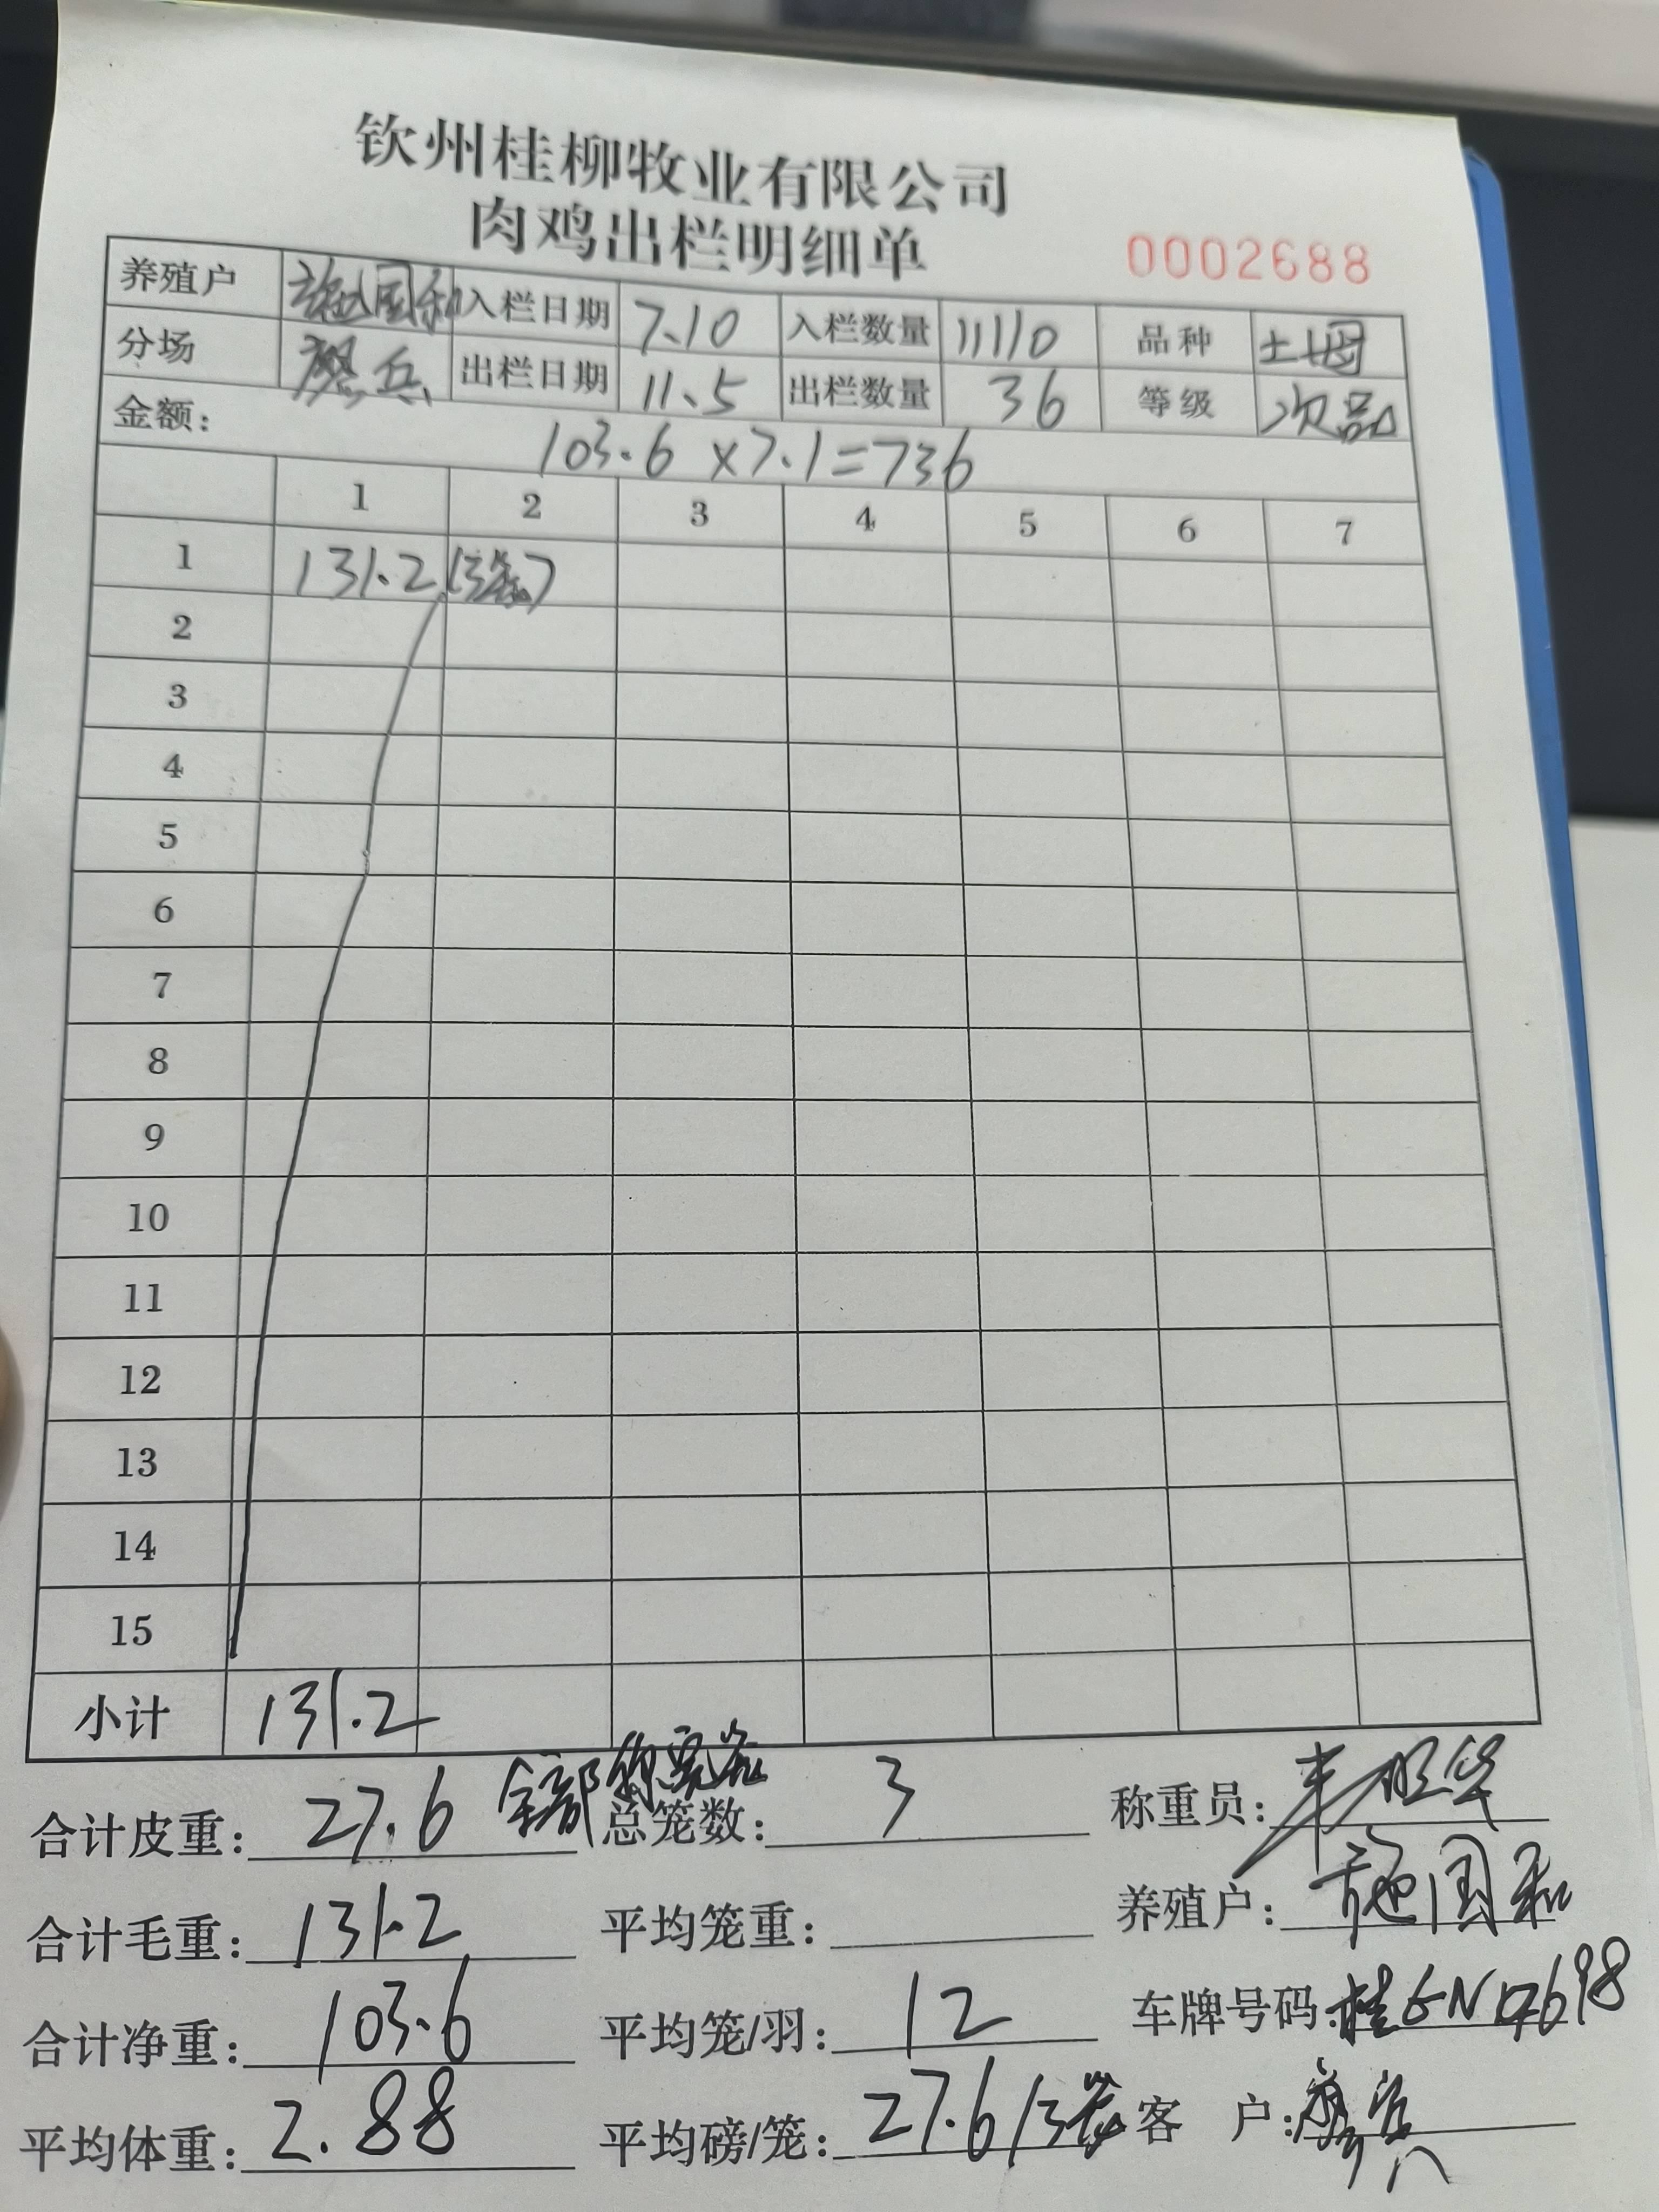 钦州桂柳牧业有限公司
肉鸡出栏明细单
0002688
养殖户 施国和 入栏日期 7.10 入栏数量 11110 品种
分场 出栏日期 11.5 出栏数量 36 等级 次品
金额: 103.6 ×7.1=736
1 2 3 4 5 6 7
1 131.2 (3笼)
2
3
4
5
6
7
8
9
10
11
12
13
14
15
小计 131.2
合计皮重: 27.6 全部 总笼数: 3 称重员:
合计毛重: 131.2 平均笼重: 养殖户: 施国和
合计净重: 103.6 平均笼/羽: 12 车牌号码:
平均体重: 2.88 平均磅/笼: 27.6/3笼 客 户: